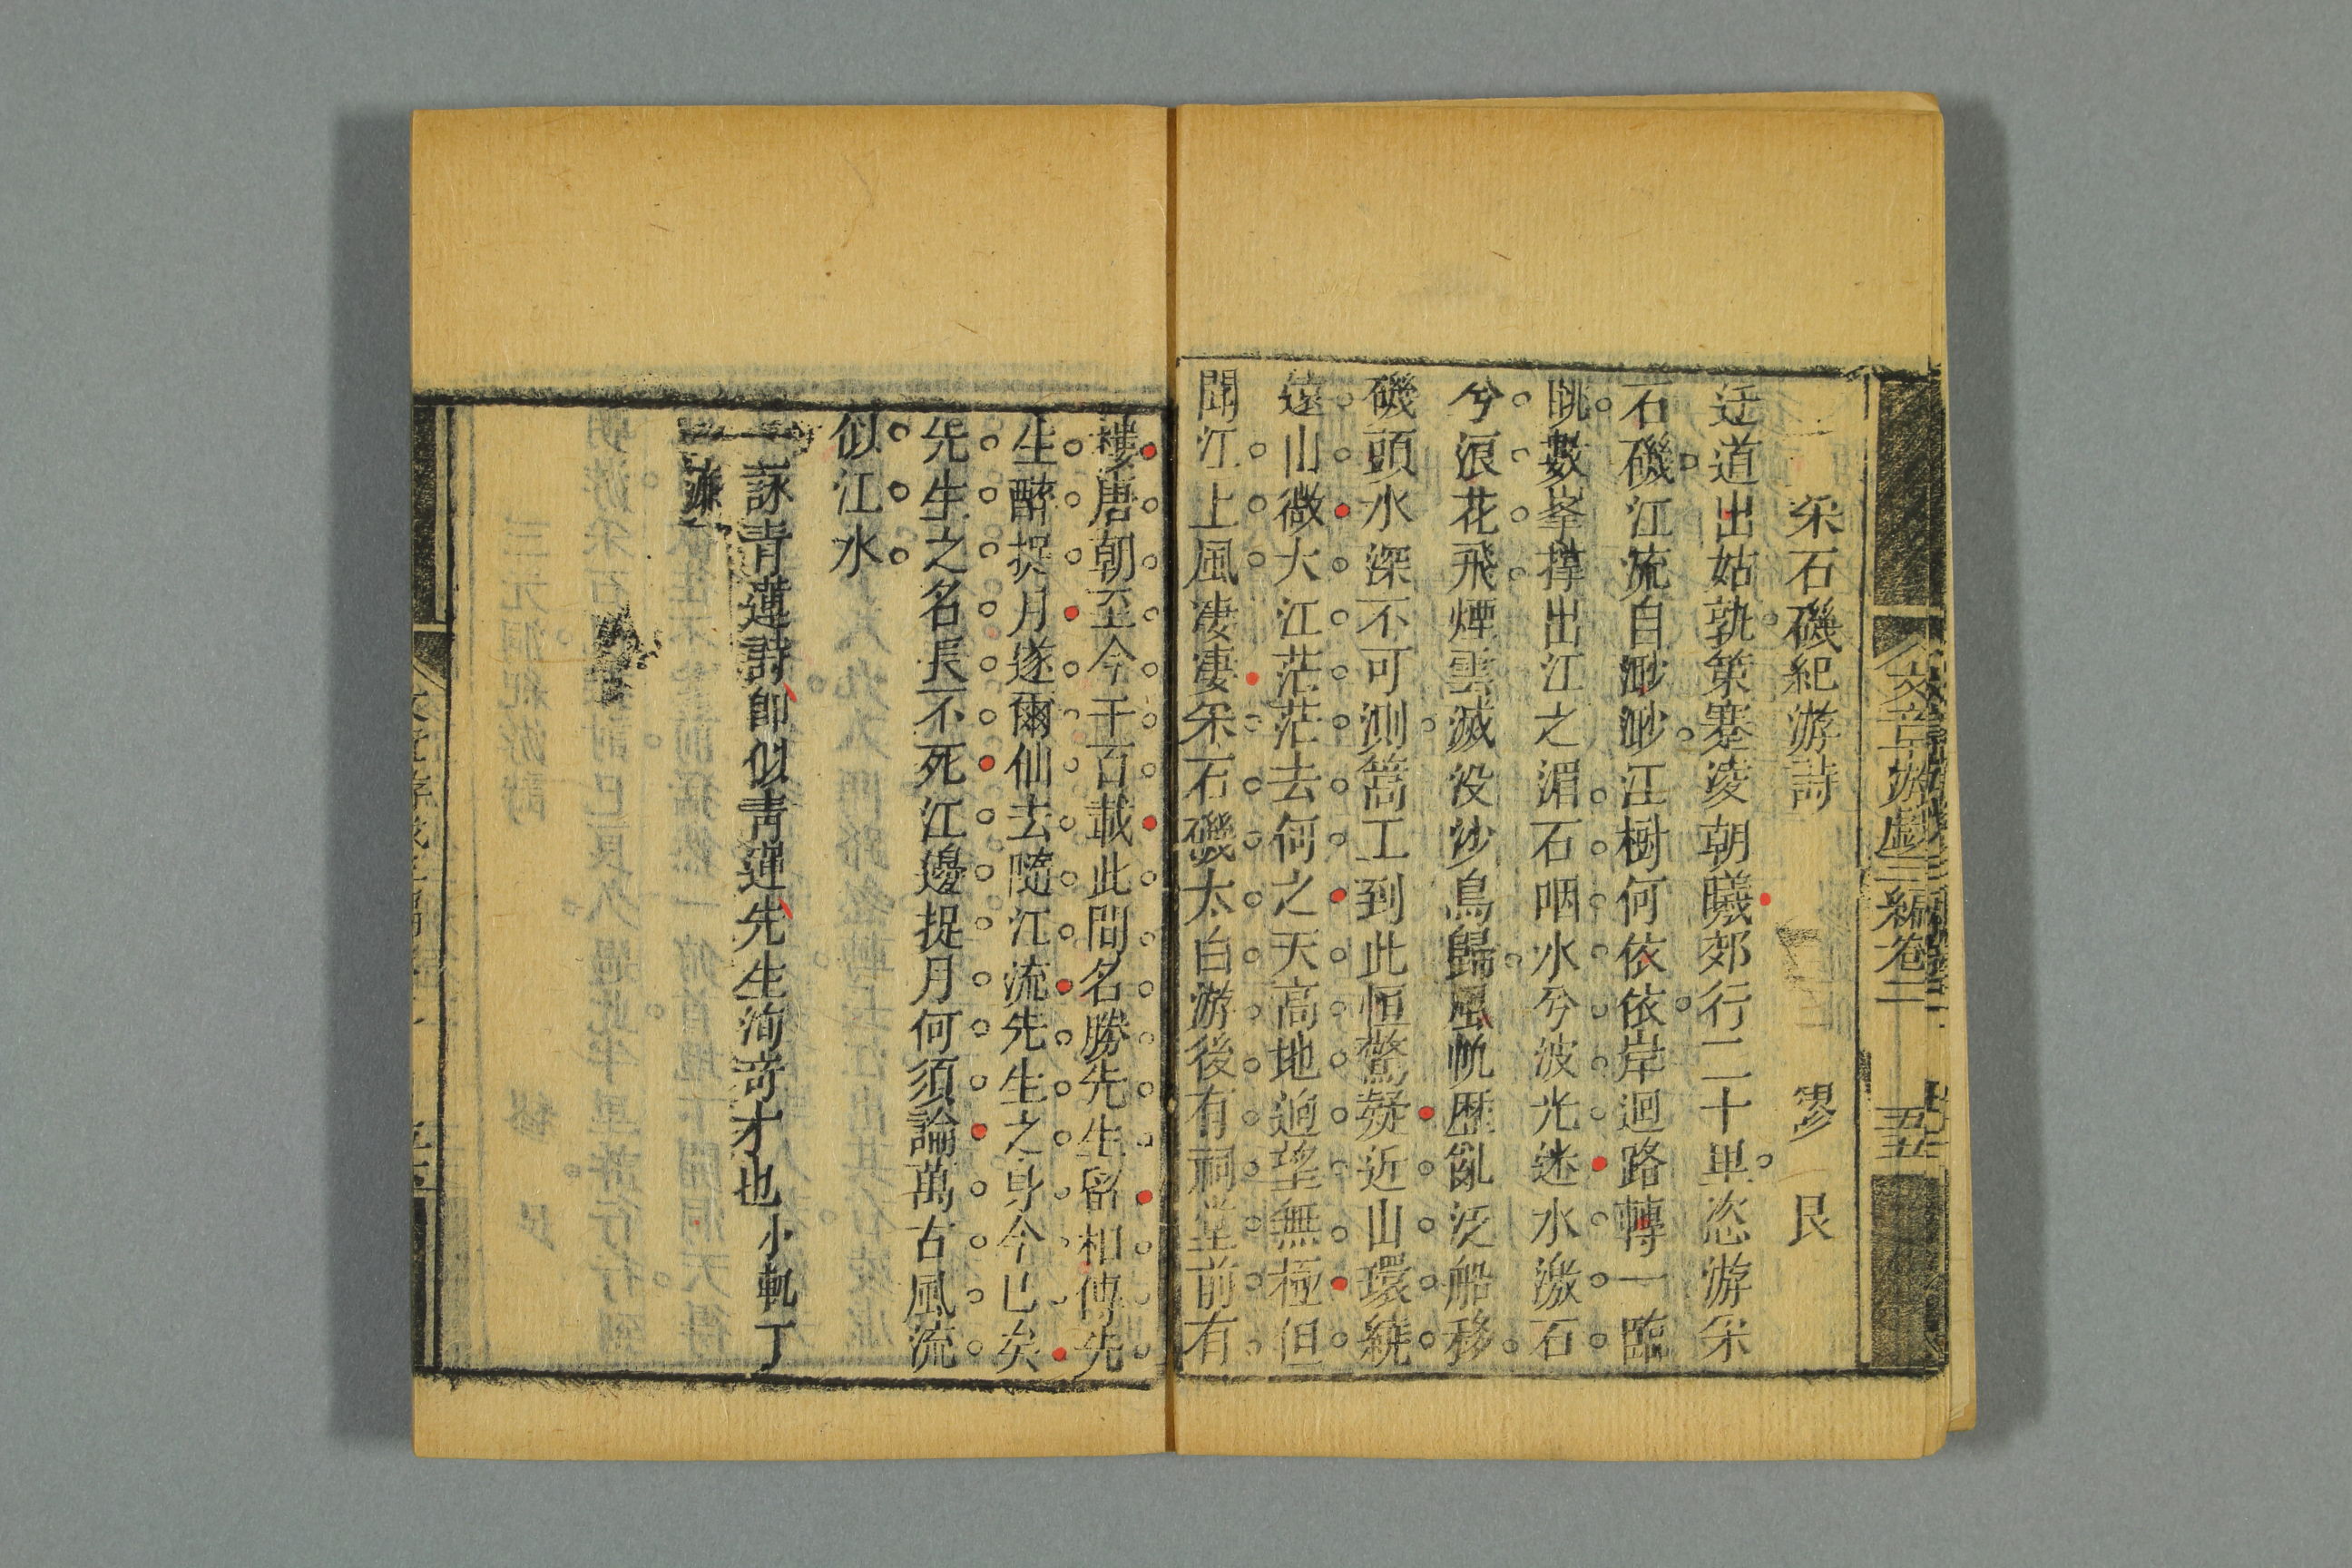 文章游戲三編卷二 五
采石磯紀游詩 繆艮
迂道出姑孰策蹇淩朝曦郊行二十里恣游采
石磯江流自渺渺江樹何依依岸迴路轉一臨
眺數峯撑出江之湄石咽水兮波光迷水激石
兮浪花飛煙雲滅没沙鳥歸風帆歷亂泛船移
磯頭水深不可測篙工到此恒驚疑近山環繞
遠山微大江茫茫去何之天高地逈望無極但
聞江上風凄凄采石磯太白游後有祠堂前有
樓唐朝至今千百載此間名勝先生留相傳先
生醉捉月遂爾仙去隨江流先生之身今已矣
先生之名長不死江邊捉月何須論萬古風流
似江水
一詠青蓮詩卽似青蓮先生洵奇才也小軏丁
溓